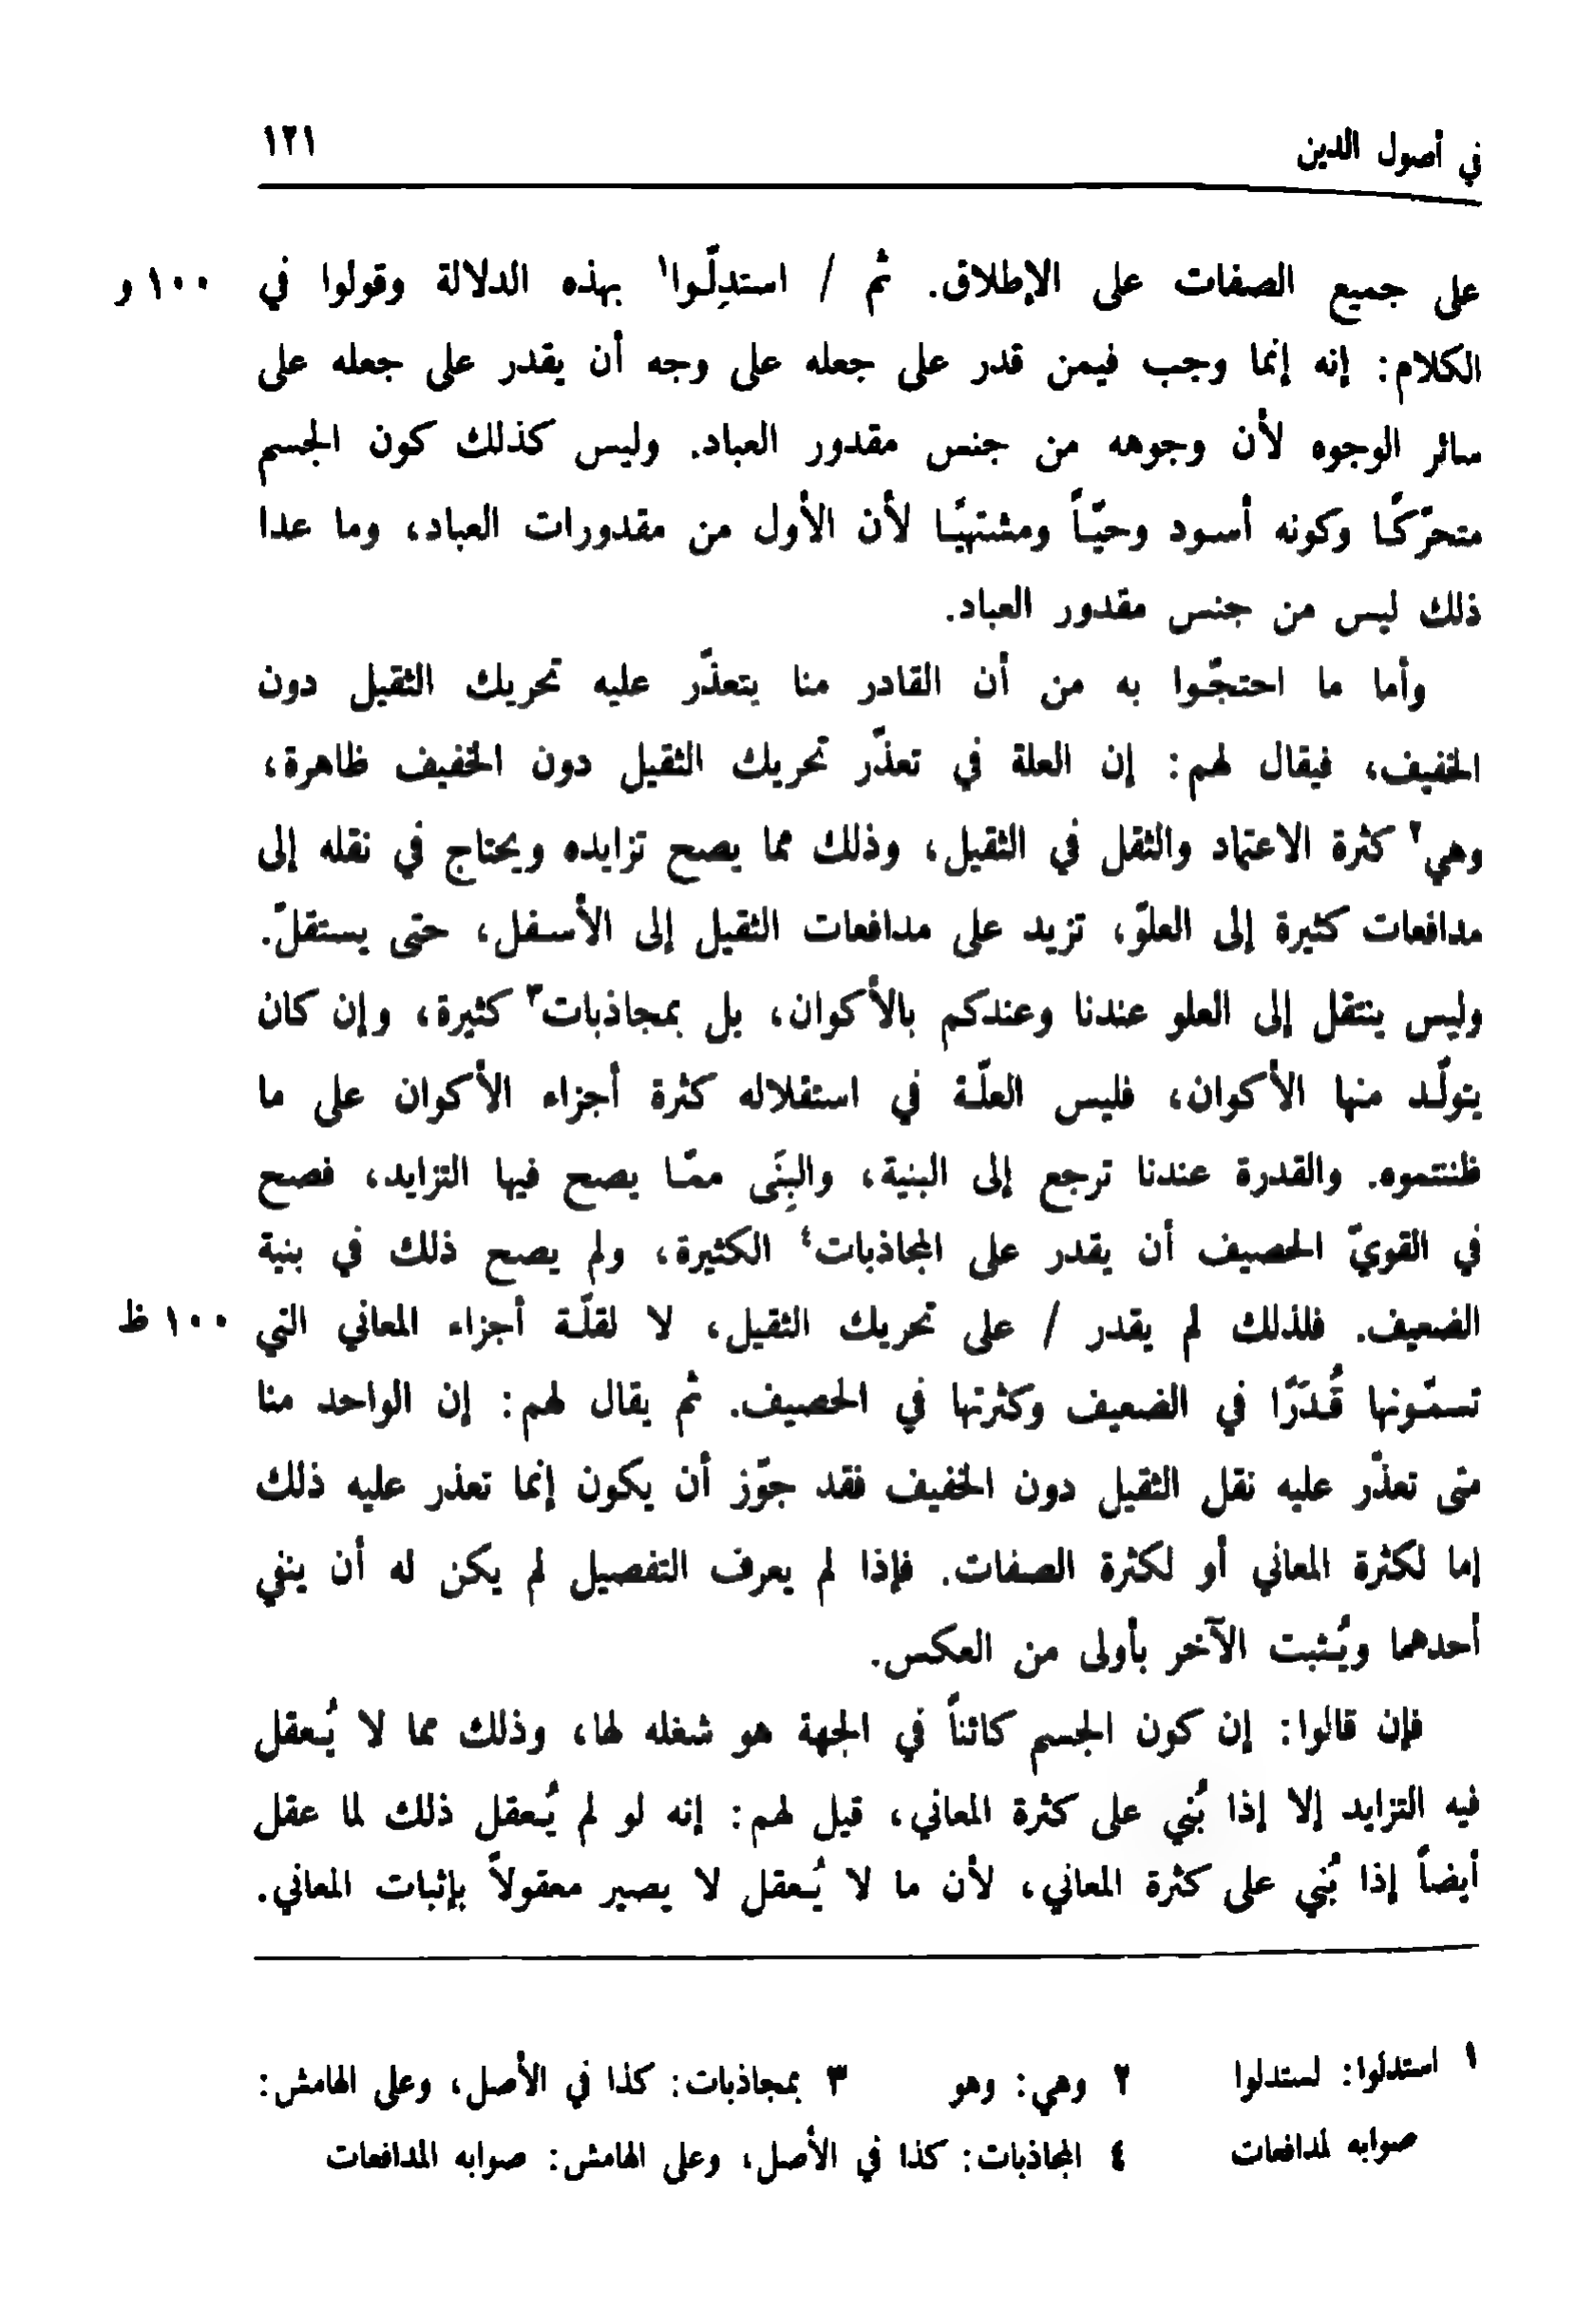 في أصول الدين ١٢١
على جميع الصفات على الإطلاق. ثم / استدِلّوا١ بهذه الدلالة وقولوا في ١٠٠ و
الكلام: إنه إنما وجب فيمن قدر على جعله على وجه أن يقدر على جعله على
سائر الوجوه لأن وجوهه من جنس مقدور العباد. وليس كذلك كون الجسم
متحرّكًا وكونه أسود وحيّاً ومشتهيًا لأن الأول من مقدورات العباد، وما عدا
ذلك ليس من جنس مقدور العباد.
وأما ما احتجّوا به من أن القادر منا يتعذّر عليه تحريك الثقيل دون
الخفيف، فيقال لهم: إن العلة في تعذّر تحريك الثقيل دون الخفيف ظاهرة،
وهي٢ كثرة الاعتماد والثقل في الثقيل، وذلك مما يصح تزايده ويحتاج في نقله إلى
مدافعات كثيرة إلى العلوّ، تزيد على مدافعات الثقيل إلى الأسفل، حتى يستقلّ.
وليس ينتقل إلى العلو عندنا وعندكم بالأكوان، بل بمجاذبات٣ كثيرة، وإن كان
يتولّد منها الأكوان، فليس العلّة في استقلاله كثرة أجزاء الأكوان على ما
ظننتموه. والقدرة عندنا ترجع إلى البنية، والبِنَى ممّا يصح فيها التزايد، فصح
في القويّ الحصيف أن يقدر على المجاذبات٤ الكثيرة، ولم يصح ذلك في بنية
الضعيف. فلذلك لم يقدر / على تحريك الثقيل، لا لقلّة أجزاء المعاني التي ١٠٠ ظ
تسمّونها قُدَرًا في الضعيف وكثرتها في الحصيف. ثم يقال لهم: إن الواحد منا
متى تعذّر عليه نقل الثقيل دون الخفيف فقد جوّز أن يكون إنما تعذر عليه ذلك
إما لكثرة المعاني أو لكثرة الصفات. فإذا لم يعرف التفصيل لم يكن له أن ينفي
أحدهما ويُثبت الآخر بأولى من العكس.
فإن قالوا: إن كون الجسم كائناً في الجهة هو شغله لها، وذلك مما لا يُعقل
فيه التزايد إلا إذا بُني على كثرة المعاني، قيل لهم: إنه لو لم يُعقل ذلك لما عقل
أيضاً إذا بُني على كثرة المعاني، لأن ما لا يُعقل لا يصير معقولاً بإثبات المعاني.
١ استدلوا: لستدلوا ٢ وهي: وهو ٣ بمجاذبات: كذا في الأصل، وعلى الهامش:
صوابه لمدافعات ٤ المجاذبات: كذا في الأصل، وعلى الهامش: صوابه المدافعات